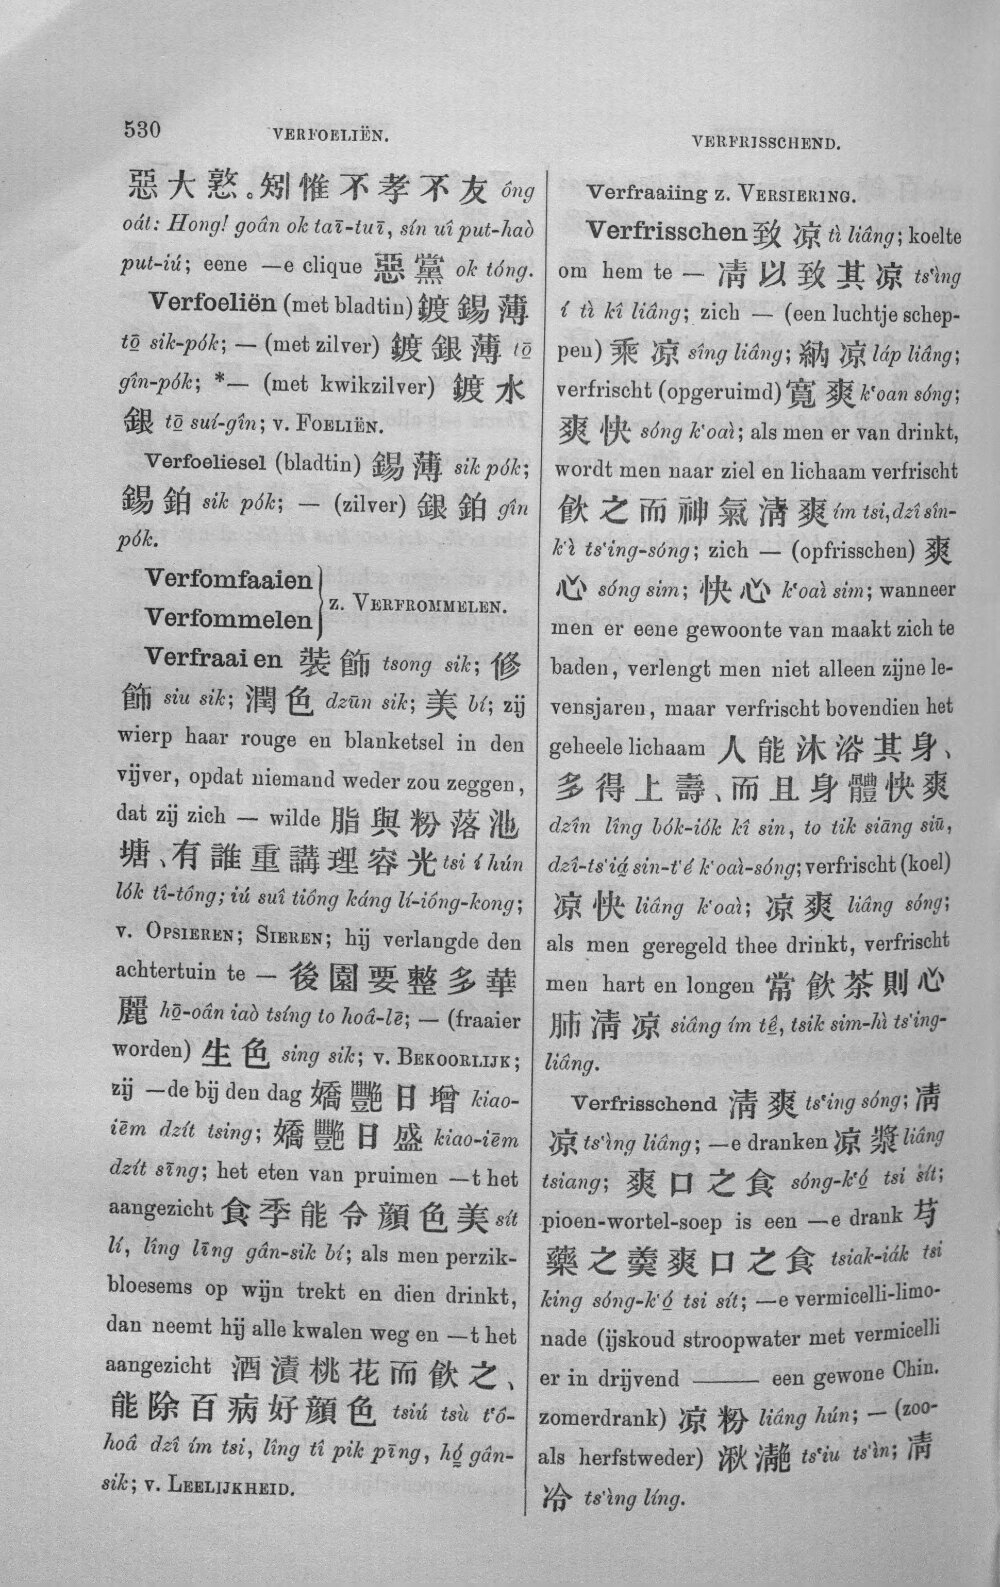 530
VERFOELIËN.
VERFRISSCHEND.
惡大憝。矧惟不孝不友 ông
oát: Hong! goân ok taī-tuī, sín uî put-haò
put-iú; eene —e clique 惡黨 ok tóng.
Verfoeliën (met bladtin) 鍍錫薄
tō sik-pók; — (met zilver) 鍍銀薄 tō
gîn-pók; *— (met kwikzilver) 鍍水
銀 tō suí-gîn; v. FOELIËN.
Verfoeliesel (bladtin) 錫薄 sik pók;
錫鉑 sik pók; — (zilver) 銀鉑 gîn
pók.
Verfomfaaien
Verfommelen } z. VERFROMMELEN.
Verfraaien 裝飾 tsong sik; 修
飾 siu sik; 潤色 dzūn sik; 美 bí; zij
wierp haar rouge en blanketsel in den
vijver, opdat niemand weder zou zeggen,
dat zij zich — wilde 脂與粉落池
塘、有誰重講理容光 tsi í hún
lók tî-tông; iú suî tiông káng lí-iông-kong;
v. OPSIEREN; SIEREN; hij verlangde den
achtertuin te — 後園要整多華
麗 hō-oân iaò tsíng to hoâ-lē; — (fraaier
worden) 生色 sing sik; v. BEKOORLIJK;
zij —de bij den dag 嬌艷日增 kiao-
iēm dzít tsing; 嬌艷日盛 kiao-iēm
dzít sīng; het eten van pruimen —t het
aangezicht 食季能令顏色美 sít
lí, lîng līng gân-sik bí; als men perzik-
bloesems op wijn trekt en dien drinkt,
dan neemt hij alle kwalen weg en —t het
aangezicht 酒漬桃花而飲之、
能除百病好顏色 tsiú tsù t'ô-
hoâ dzî ím tsi, lîng tî pik pīng, hó gân-
sik; v. LEELIJKHEID.
Verfraaiing z. VERSIERING.
Verfrisschen 致凉 tì liâng; koelte
om hem te — 凊以致其凉 ts'ìng
í tì kî liâng; zich — (een luchtje schep-
pen) 乘凉 sîng liâng; 納凉 láp liâng;
verfrischt (opgeruimd) 寬爽 k'oan sóng;
爽快 sóng k'oaì; als men er van drinkt,
wordt men naar ziel en lichaam verfrischt
飲之而神氣清爽 ím tsi, dzî sîn-
k'ì ts'ing-sóng; zich — (opfrisschen) 爽
心 sóng sim; 快心 k'oaì sim; wanneer
men er eene gewoonte van maakt zich te
baden, verlengt men niet alleen zijne le-
vensjaren, maar verfrischt bovendien het
geheele lichaam 人能沐浴其身、
多得上壽、而且身體快爽
dzîn lîng bók-iók kî sin, to tik siāng siū,
dzî-ts'iá sin-t'é k'oaì-sóng; verfrischt (koel)
凉快 liâng k'oaì; 凉爽 liâng sóng;
als men geregeld thee drinkt, verfrischt
men hart en longen 常飲茶則心
肺清凉 siâng ím tê, tsik sim-hì ts'ing-
liâng.
Verfrisschend 清爽 ts'ing sóng; 凊
凉 ts'ìng liâng; —e dranken 凉漿 liâng
tsiang; 爽口之食 sóng-k'ó tsi sít;
pioen-wortel-soep is een —e drank 芍
藥之羹爽口之食 tsiak-iák tsi
king sóng-k'ó tsi sít; —e vermicelli-limo-
nade (ijskoud stroopwater met vermicelli
er in drijvend —— een gewone Chin.
zomerdrank) 凉粉 liâng hún; — (zoo-
als herfstweder) 湫瀞 ts'iu ts'ìn; 凊
冷 ts'ìng líng.